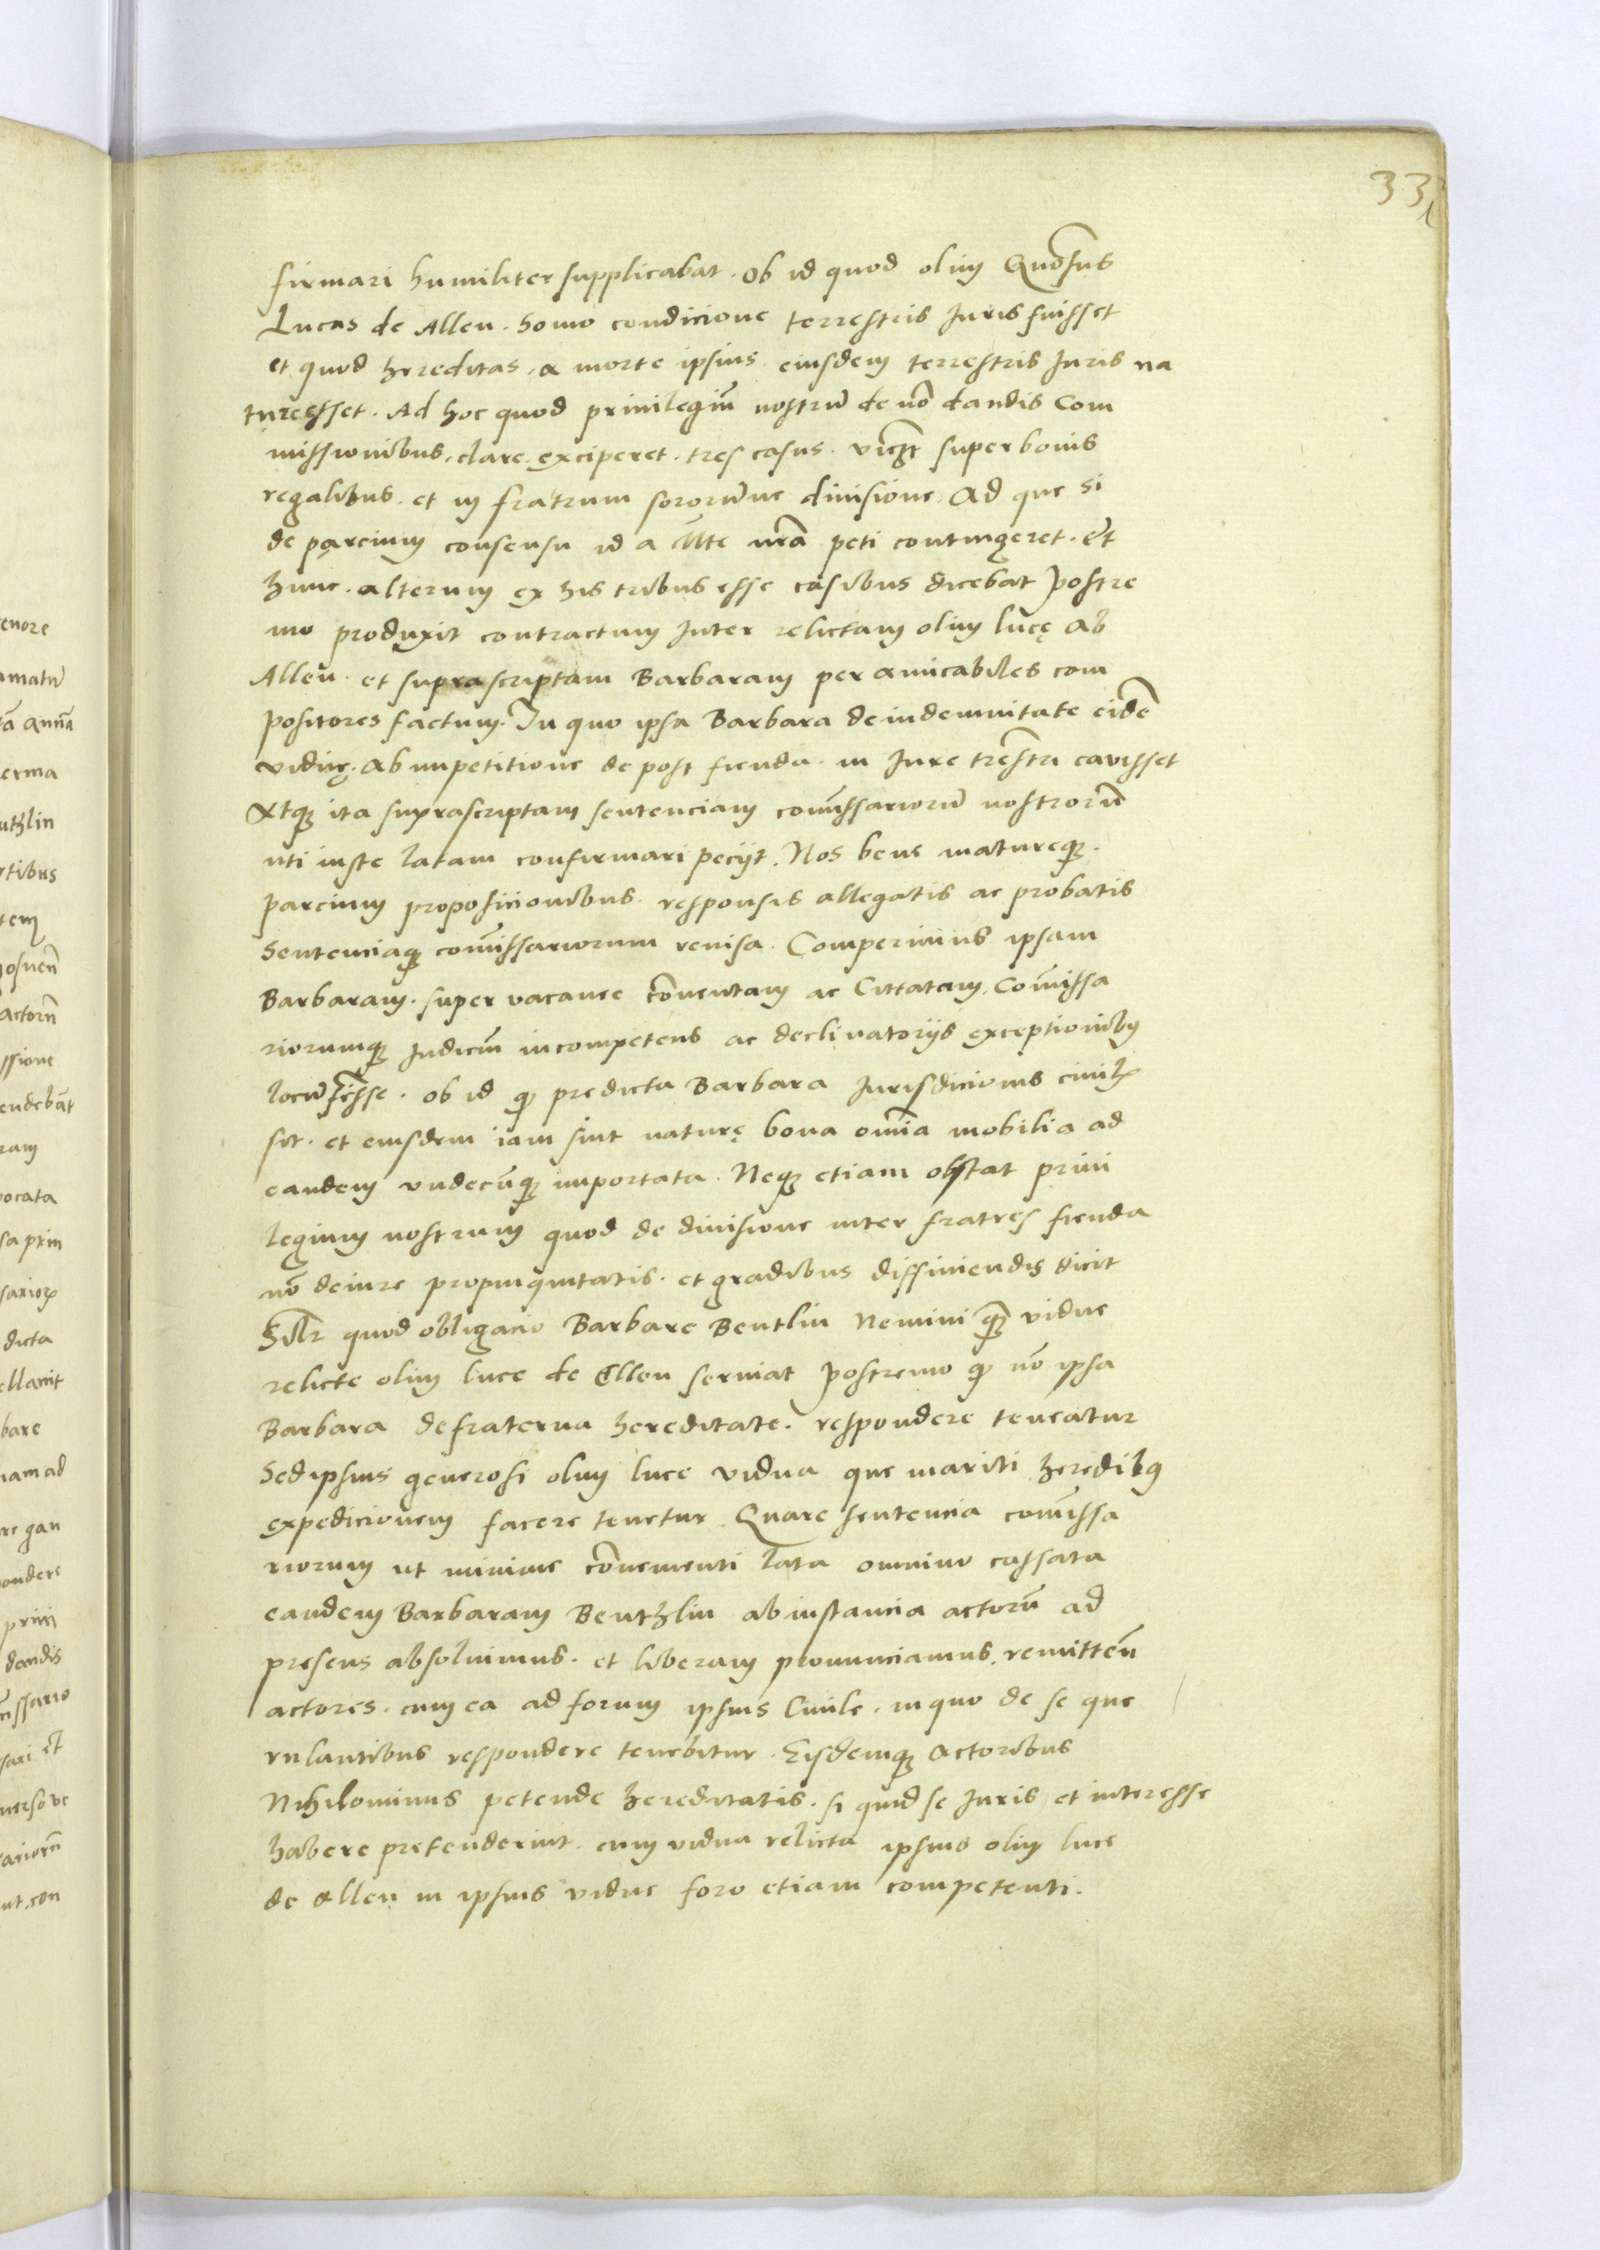 33
firmari humiliter supplicabat. Ob id quod olim Gnosus
Lucas de Allen. homo condicione terrestris Juris fuisset
et quod hereditas, a morte ipsius eiusdem terrestris Juris na
turesset. Ad hoc quod priuilegiu nostru de no dandis Com
missionibus, clare exciperet. tres casus. super bonis
regalibus. et in fratrum sororumue diuisione. Ad que si
de parcium consensu id a Mte nra peti contingeret. Et
hunc. alterum ex his tribus esse casibus dicebat Postre
mo produxit contractum Inter relictam olim lucę Ab
Allen. et suprascriptam Barbaram per amicabiles com
positores factum. In quo ipsa Barbara de indemnitate eidē
viduę. ab impetitione de post fienda. in Jure trestri cavisset
Atq3 ita suprascriptam sentenciam comissarioru nostroru
uti iuste latam confirmari peciit. Nos bene matureq3.
parcium proposicionibus. responsis allegatis ac probatis
Sentenciaq3 comissariorum reuisa. Comperimus ipsam
Barbaram. super vacanee conuentam ac Cittatam, Comissa
riorumq3 Judiciu incompetens ac declinatoriis exceptionibus
locu fuisse. ob id qp predicta Barbara Jurisdicionis ciuilis
sit. et eiusdem iam sint naturę bona omia mobilia ad
eandem vndecunq3 importata. Neq3 etiam obstat priui
legium nostrum quod de diuisione inter fratres fienda
no de iure propinquitatis. et gradibus diffiniendis dicit
Silr quod obligacio Barbare Bentlin Nemini qm vidue
relicte olim luce de Ellen seruiat Postremo qp no ipsa
Barbara de fraterna hereditate. respondere teneatur
Sed ipsius generosi olim luce vidua que mariti heredibus
expedicionem facere tenetur. Quare sentencia comissa
riorum ut minime conuenienti lata omnino cassata
eandem Barbaram Benthlin ab instancia actoru ad
presens absoluimus. et liberam pronunciamus. remitten
actores. cum ea ad forum ipsius Ciuile. in quo de se que
rulantibus respondere tenebitur. Eisdemq3 actoribus
Nihilominus petende hereditatis. si quid se Juris et interesse
habere pretenderint. cum vidua relicta ipsius olim luce
de Allen in ipsius vidue foro etiam competenti.